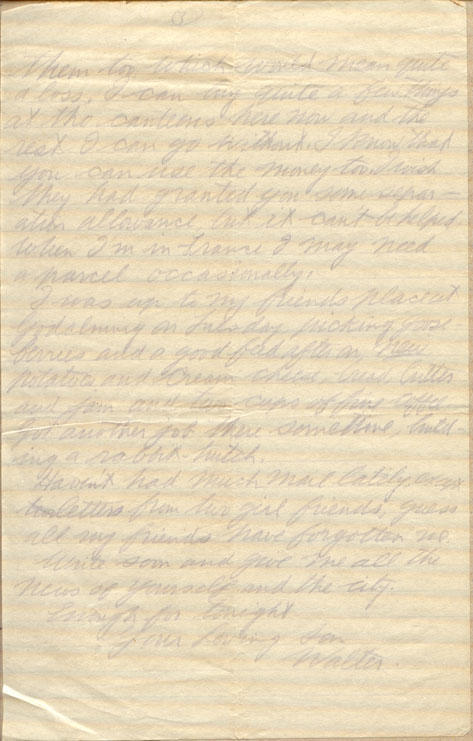 (3)
them too, which would mean quite
a loss. I can buy quite a few things
at the canteens here now and the
rest I can go without. I know that
you can use the money too. I wish
they had granted you some separ-
ation allowance but it can't be helped
When I'm in France I may need
a parcel occasionally.
I was up to my friends place at
Godalming on Tuesday picking goose
berries and a good feed after on, new
potatoes and cream cheese, bread, butter
and jam and two cups of fine coffee
Got another job there sometime, build-
ing a rabbit hutch.
Haven't had much mail lately, except
two letters from two girl friends, guess
all my friends have forgotten me.
Write soon and give me all the
news of yourself and the city.
Enough for tonight
Your Loving Son
Walter.